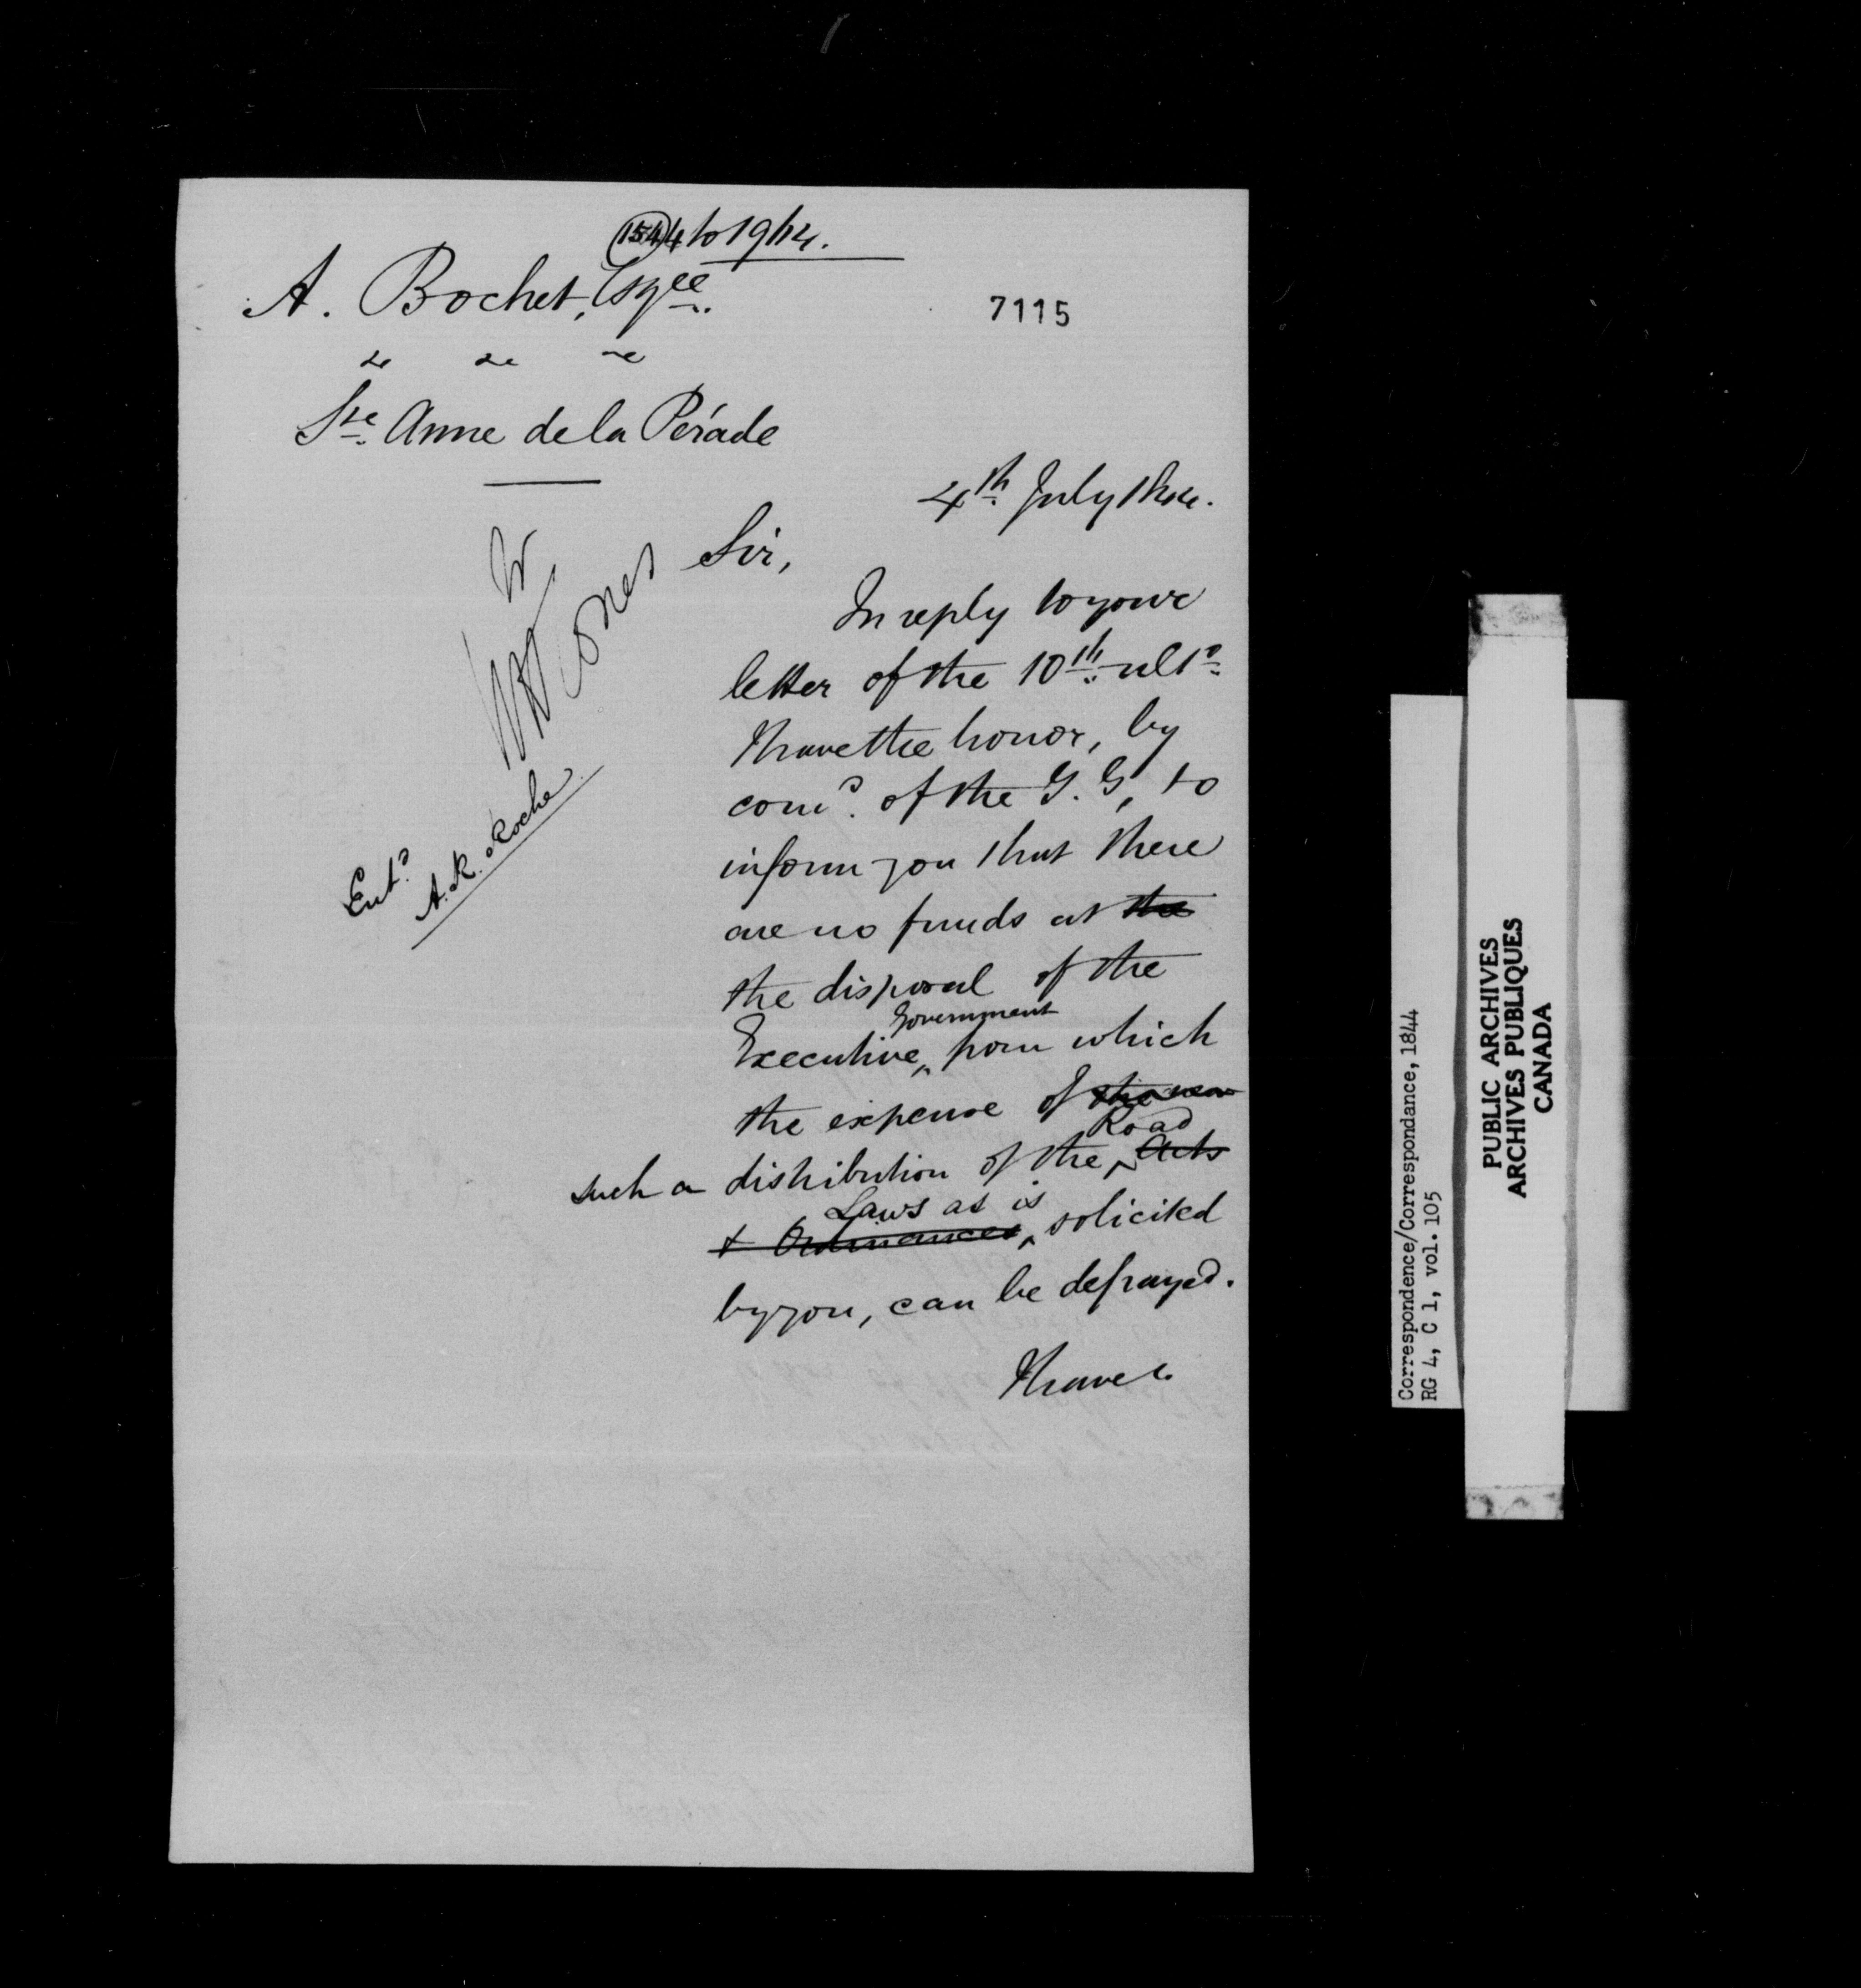 1544 to 1944.
A. Bochet, Esqre.
7115
Ste. Anne de la Pérade
4th. July 1844.
Sir,
In reply to your
letter of the 10th. ulto.
I have the honor, by
comd. of the G. G, to
inform you that there
are no funds at the
the disposal of the
Executive Government from which
the expense of
such a distribution of the Road Acts
& Ordinances Laws as is solicited
by you, can be defrayed.
I have &c.
Entd.
A. R. Roche
Correspondence/Correspondance, 1844
RG 4, C 1, vol. 105
PUBLIC ARCHIVES
ARCHIVES PUBLIQUES
CANADA